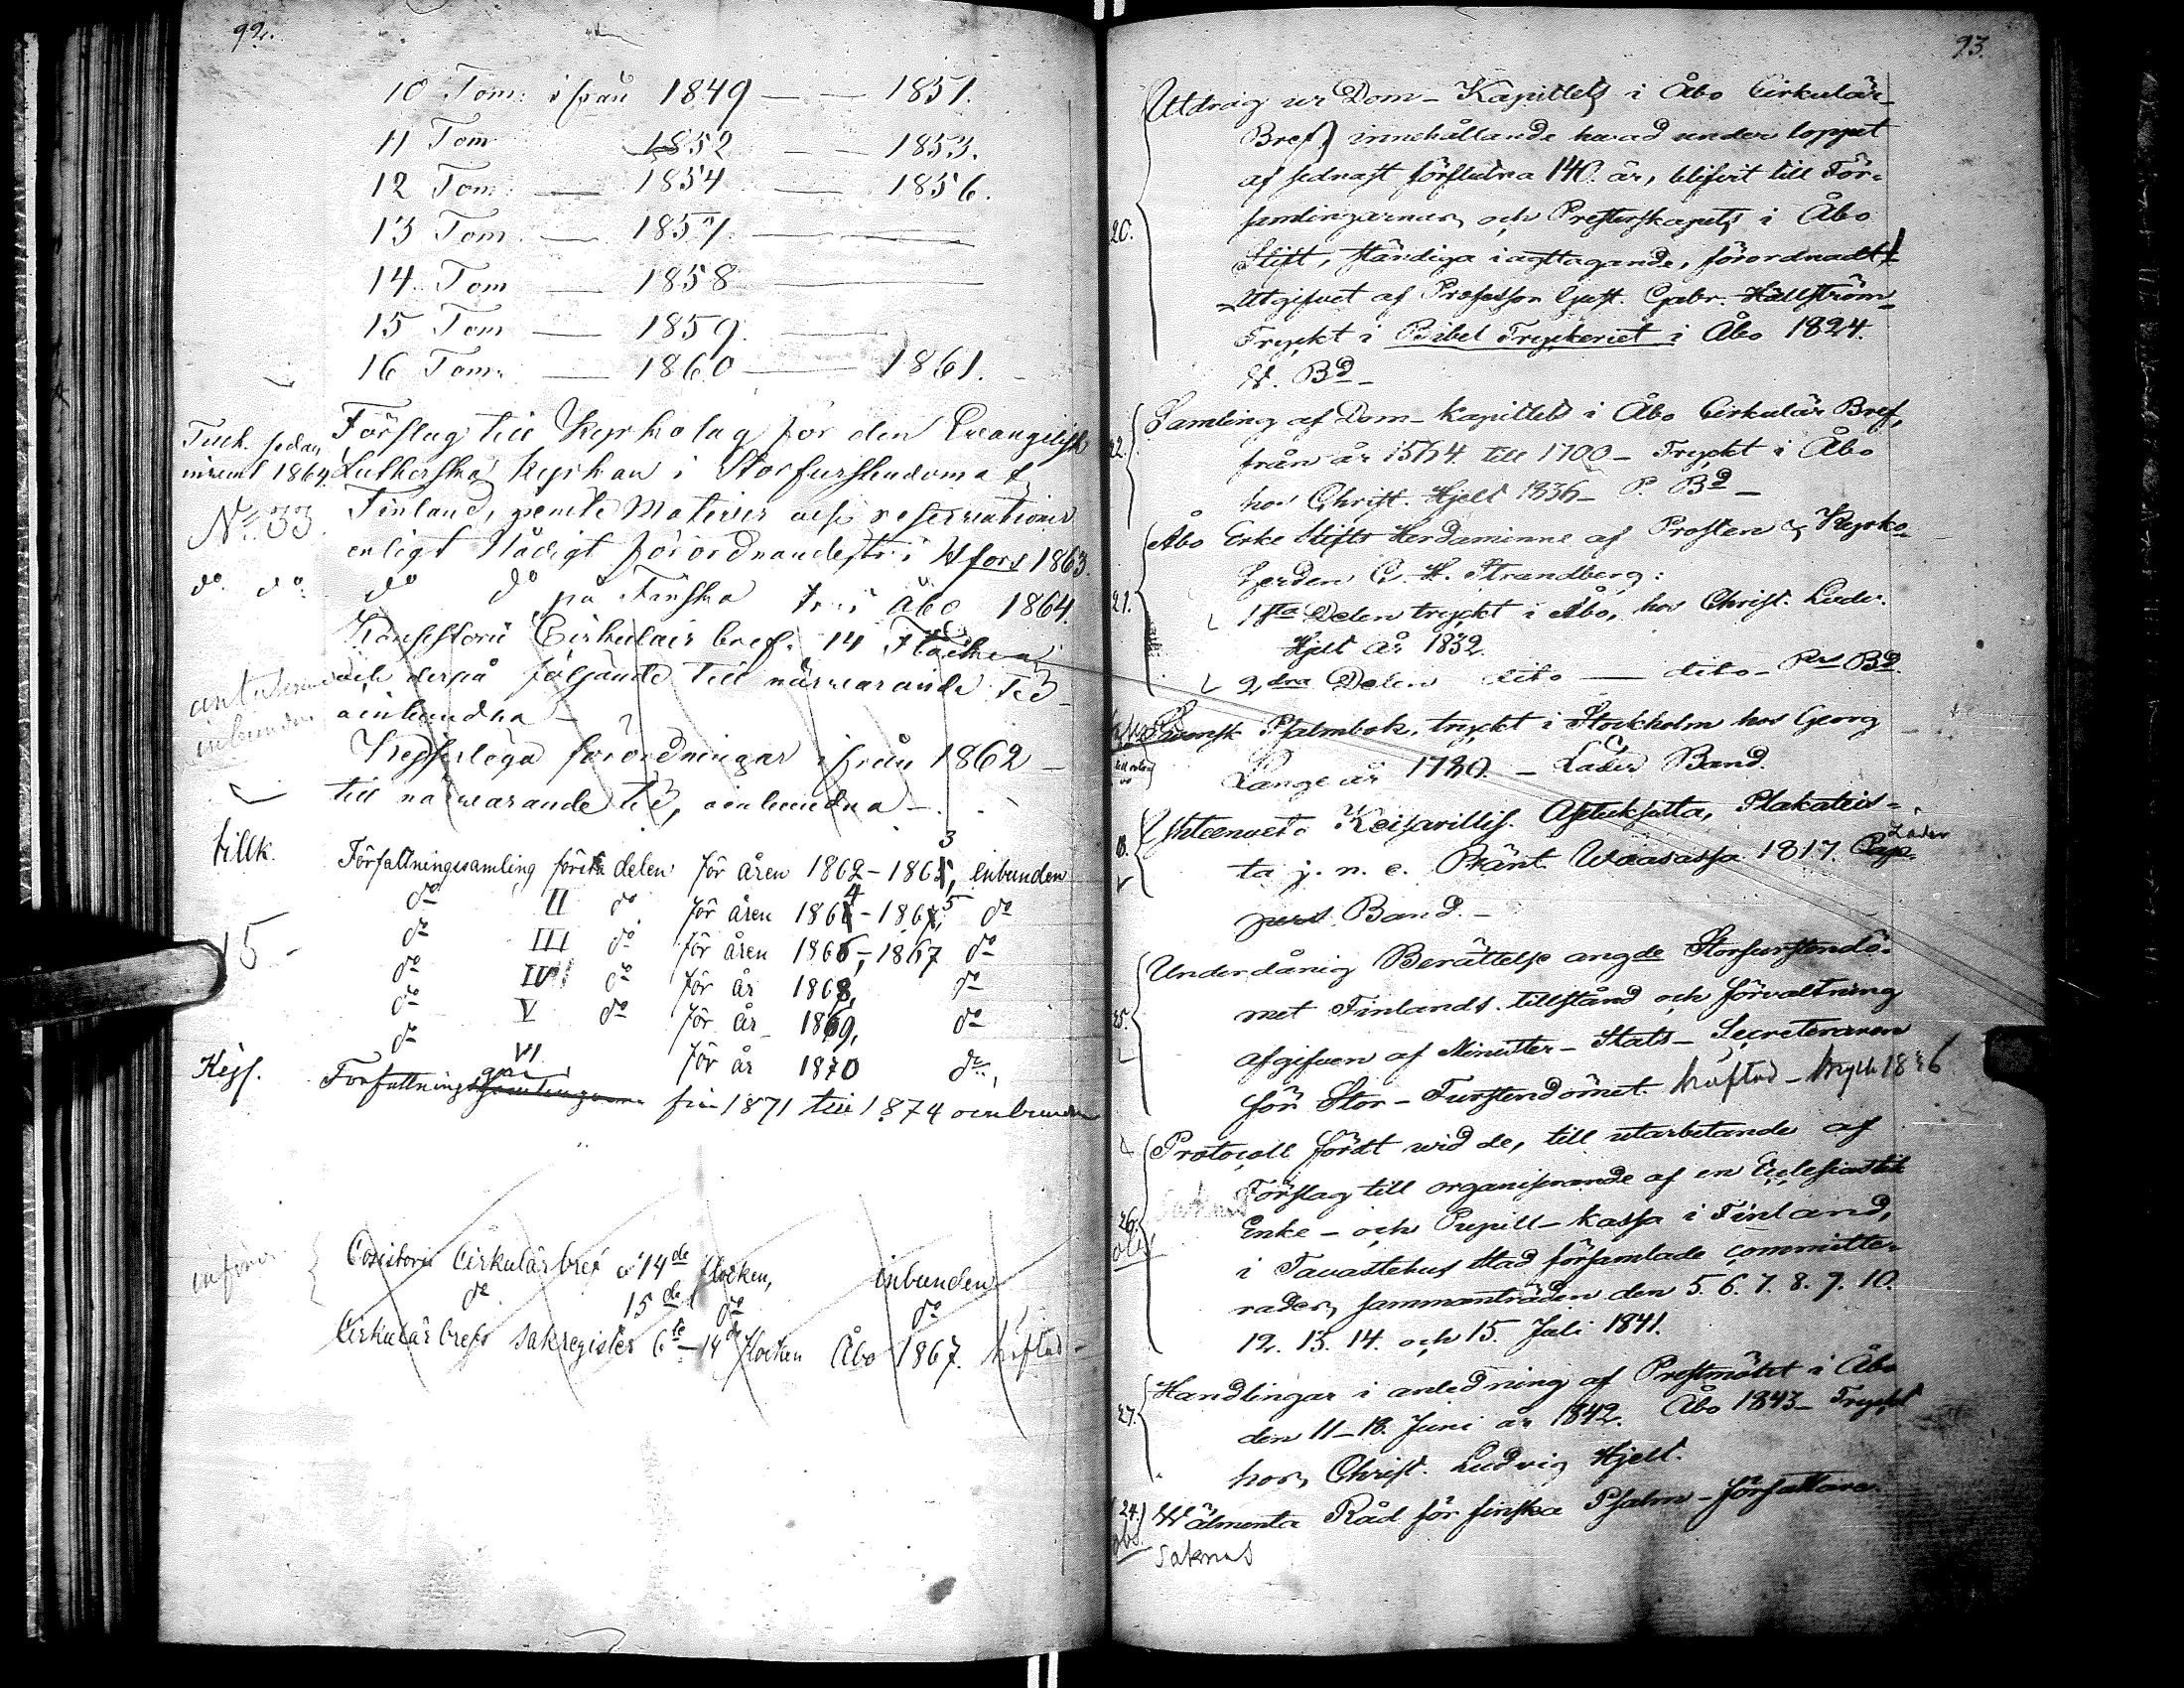 92.
10 Tom: ifrån 1849 — — 1851.
11 Tom 1852 — — 1853.
12 Tom: — 1854 — 1856.
13 Tom. — 1857. —
14 Tom — 1858 —
15 Tom — 1859. —
16 Tom. — 1860 — 1861. -
Förslag till Kyrkolag för den Evangelisk
sedan
1864. Lutherska Kyrkan i Storfurstendomet
No 33. Finland, jemte Motiver och reservationer
enligt Nådigt förordnande tr. i Hfors 1863.
do do: do do på Finska tr. i Åbo 1864.
Konsistorii Cirkulair bref. 14 Flocken
och derpå följande till närvarande tid
oinbundna -
inbundna
Kejserliga förordningar ifrån 1862 -
till närvarande tid, oinbundna -
tillk. Författningssamling första delen för åren 1862-1863, inbunden
do II do för åren 1864-1865, do
15 - do III do för åren 1866,-1867 do
do IV do för år 1868, do
do V do för år 1869, do
do VI för år 1870 do,
Kejs. Författningssamlingarne från 1871 till 1874 oinbundna
Cirkulärbref 14de flocken, inbunden
do 15de do do
Cirkulärbrefs sakregister 6te-14de flocken Åbo 1867. häftad -
93.
Utdrag ur Dom-Kapitlets i Åbo Cirkulär-
Bref, innehållande hvad under loppet
af sednast förflutna 140. år, blifvit till För-
20. samlingarnas och Presterskapets i Åbo
Stift, ständiga iagttagande, förordnadt!
Utgifvet af Professor Gust. Gabr. Hällström
Tryckt i Bibel Tryckeriet i Åbo 1824.
Bd -
Samling af Dom-kapitlets i Åbo Cirkulär Bref,
22. från år 1564. till 1700 - Tryckt i Åbo
hos Christ. Hjelt 1836 - P. Bd -
Åbo Erke Stifts Herdaminne af Prosten & Kyrko-
herden C. H. Strandberg:
21. 1sta Delen tryckt i Åbo, hos Christ. Ludv.
Hjelt år 1832.
2dra Delen dito — dito - Bd.
Svensk Psalmbok, tryckt i Stockholm hos Georg
Lange år 1780. - Läder Band.
Keisarillis. Asetuksilta, Plakateis-
ta j. n. e. Pränt. Waasassa 1817. Pap- Läder
pers Band. -
Underdånig Berättelse angde Storfurstendö-
25. met Finlands tillstånd och förvaltning
afgifven af Minister-Stats-Secreteraren
för Stor-Furstendömet. häftad - tryckt 1836
Protocoll fördt wid de, till utarbetande af
saknas Förslag till organiserande af en Ecclesiastik
26. Enke- och Pupill-kassa i Finland,
i Tavastehus stad församlade committe-
rades, sammanträden den 5. 6. 7. 8. 9. 10.
12. 13. 14. och 15. Juli 1841.
Handlingar i anledning af Prestmötet i Åbo
27. den 11-18. Juni år 1842. Åbo 1843 - Tryckt
hos, Christ. Ludvig Hjelt.
24. Wälmenta Råd för finska Psalm-författare.
obs. saknas